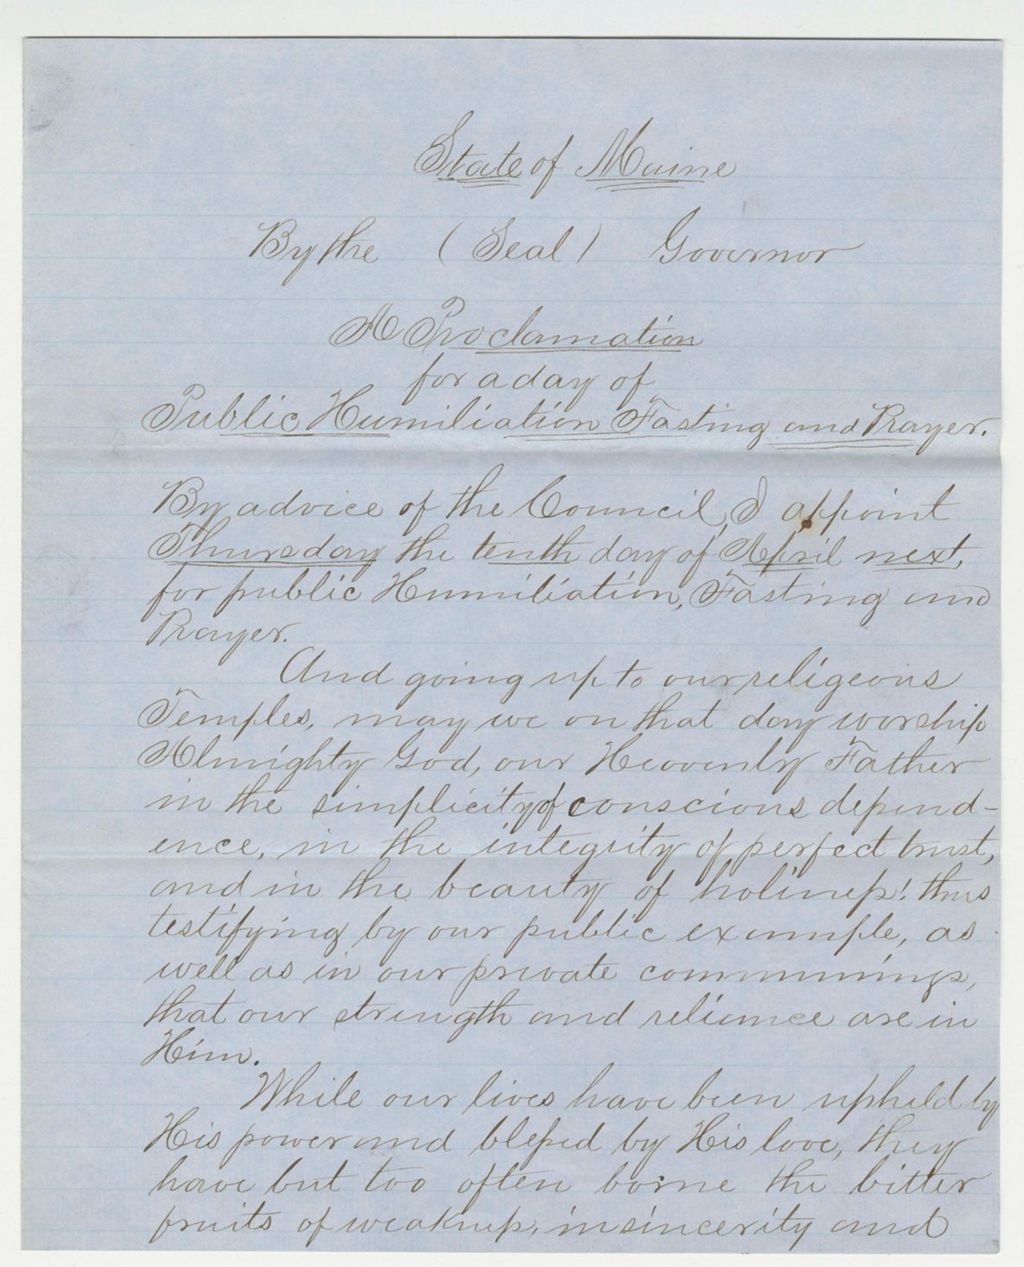 State of Maine
By the (Seal) Governor
A Proclamation
for a day of
Public Humiliation Fasting and Prayer.
By advice of the Council, I appoint
Thursday the tenth day of April next,
for public Humiliation, Fasting and
Prayer.
And going up to our religeous
Temples, may we on that day worship
Almighty God, our Heavenly Father
in the simplicity of conscious depend-
ence, in the integrity of perfect trust,
and in the beauty of holiness! thus
testifying by our public example, as
well as in our private communings,
that our strength and reliance are in
Him.
While our lives have been upheld by
His power and blessed by His love, they
have but too often borne the bitter
fruits of weakness, insincerity and